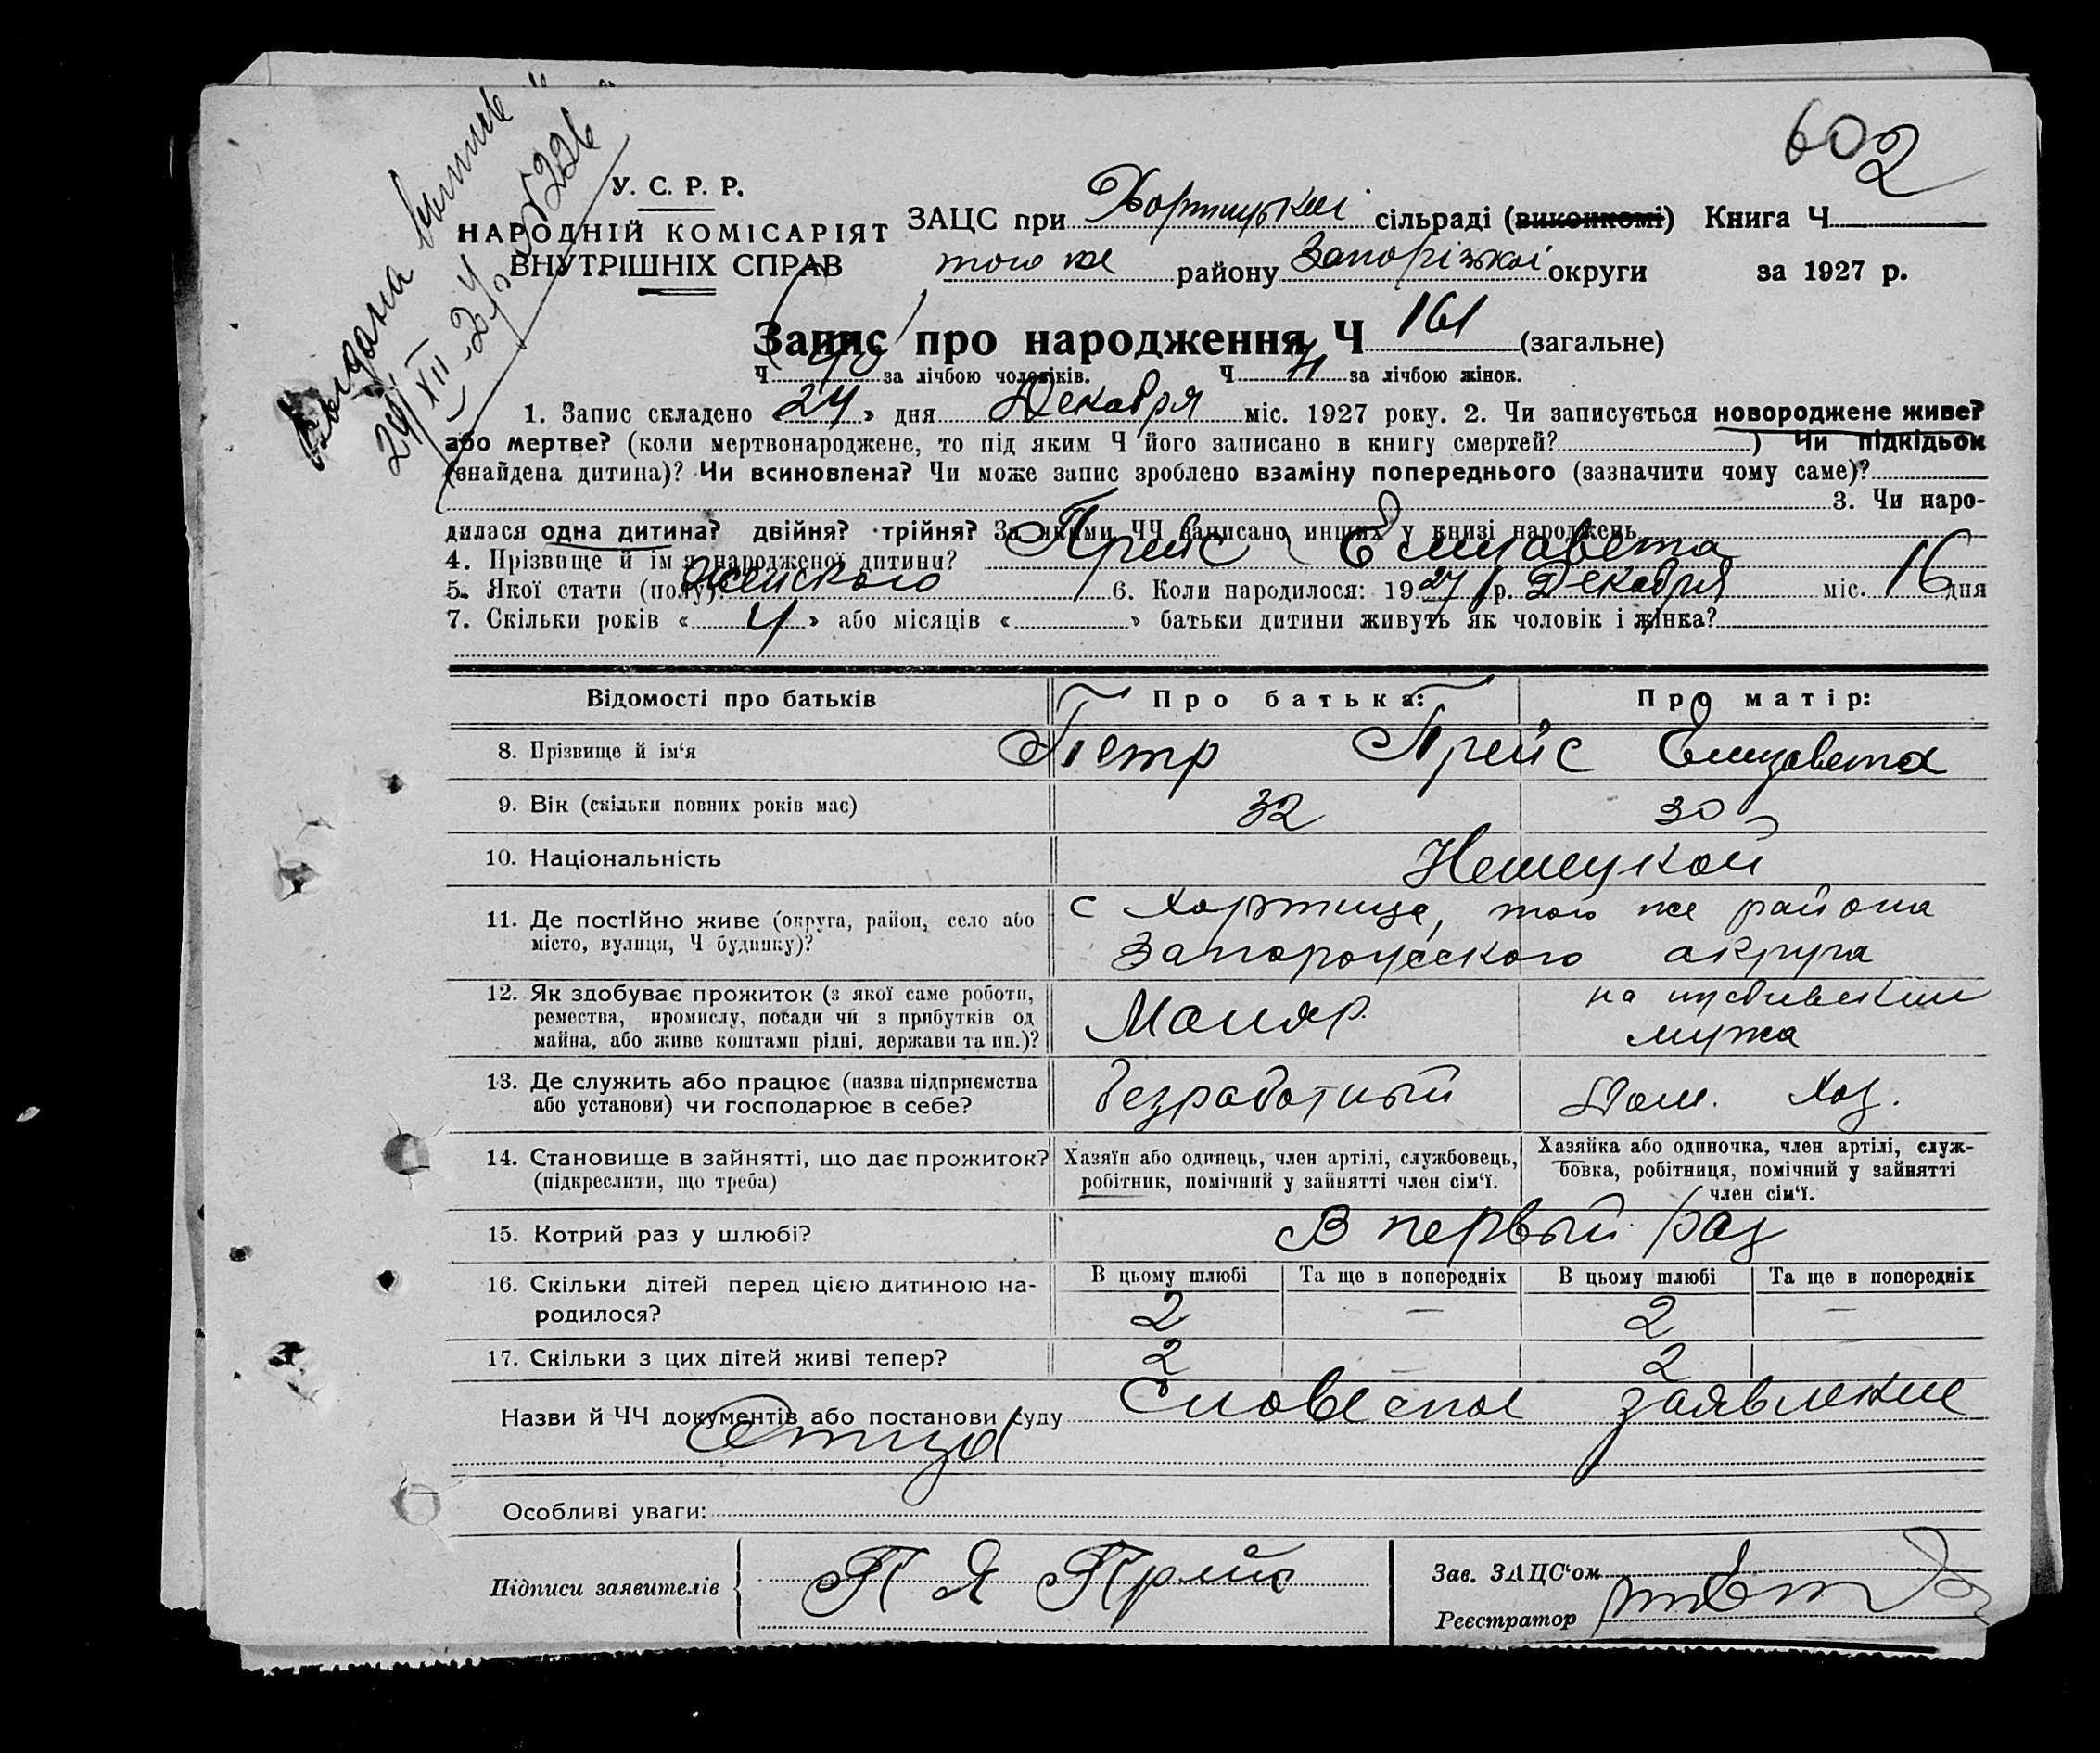 602
Выдана выпись
24/XII-27 № 226
У. С. Р. Р.
НАРОДНІЙ КОМІСАРІЯТ
ВНУТРІШНІХ СПРАВ
ЗАЦС при Хортицькій сільраді (виконкомі) Книга Ч
того же району Запорізької округи за 1927 р.
Запис про народження Ч 161 (загальне)
Ч 90 за лічбою чоловіків. Ч 71 за лічбою жінок.
1. Запис складено «24» дня Декабря міс. 1927 року. 2. Чи записується новороджене живе?
або мертве? (коли мертвонароджене, то під яким Ч його записано в книгу смертей? ) Чи підкідьок
(знайдена дитина)? Чи всиновлена? Чи може запис зроблено взаміну попереднього (зазначити чому саме)?
3. Чи наро-
дилася одна дитина? двійня? трійня? За якими ЧЧ записано инших у книзі народжень
4. Прізвище й ім'я народженої дитини? Прейс Елизавета
5. Якої стати (полу)? женского 6. Коли народилося: 1927 р. Декабря міс. 16 дня
7. Скільки років «4» або місяців « » батьки дитини живуть як чоловік і жінка?
Відомості про батьків Про батька: Про матір:
8. Прізвище й ім'я Петр Прейс Елизавета
9. Вік (скільки повних років має) 32 30
10. Національність Немецкой
11. Де постійно живе (округа, район, село або с Хортица, того же района
місто, вулиця, Ч будинку)? Запорожского округа
12. Як здобуває прожиток (з якої саме роботи,
ремества, промислу, посади чи з прибутків од
майна, або живе коштами рідні, держави та ин.)?
Маляр.
на иждивении
мужа
13. Де служить або працює (назва підприємства
або установи) чи господарює в себе?
безработный Дом. Хоз.
14. Становище в зайнятті, що дає прожиток?
(підкреслити, що треба)
Хазяїн або одинець, член артілі, службовець,
робітник, помічний у зайнятті член сім'ї.
Хазяйка або одиночка, член артілі, служ-
бовка, робітниця, помічний у зайнятті
член сім'ї.
15. Котрий раз у шлюбі? В первый раз
16. Скільки дітей перед цією дитиною на-
родилося?
В цьому шлюбі Та ще в попередніх В цьому шлюбі Та ще в попередніх
2 — 2 —
17. Скільки з цих дітей живі тепер? 2 2
Назви й ЧЧ документів або постанови суду Словесное заявление
Отца
Особливі уваги:
Підписи заявителів П Я Прейс
Зав. ЗАЦС'ом
Реєстратор